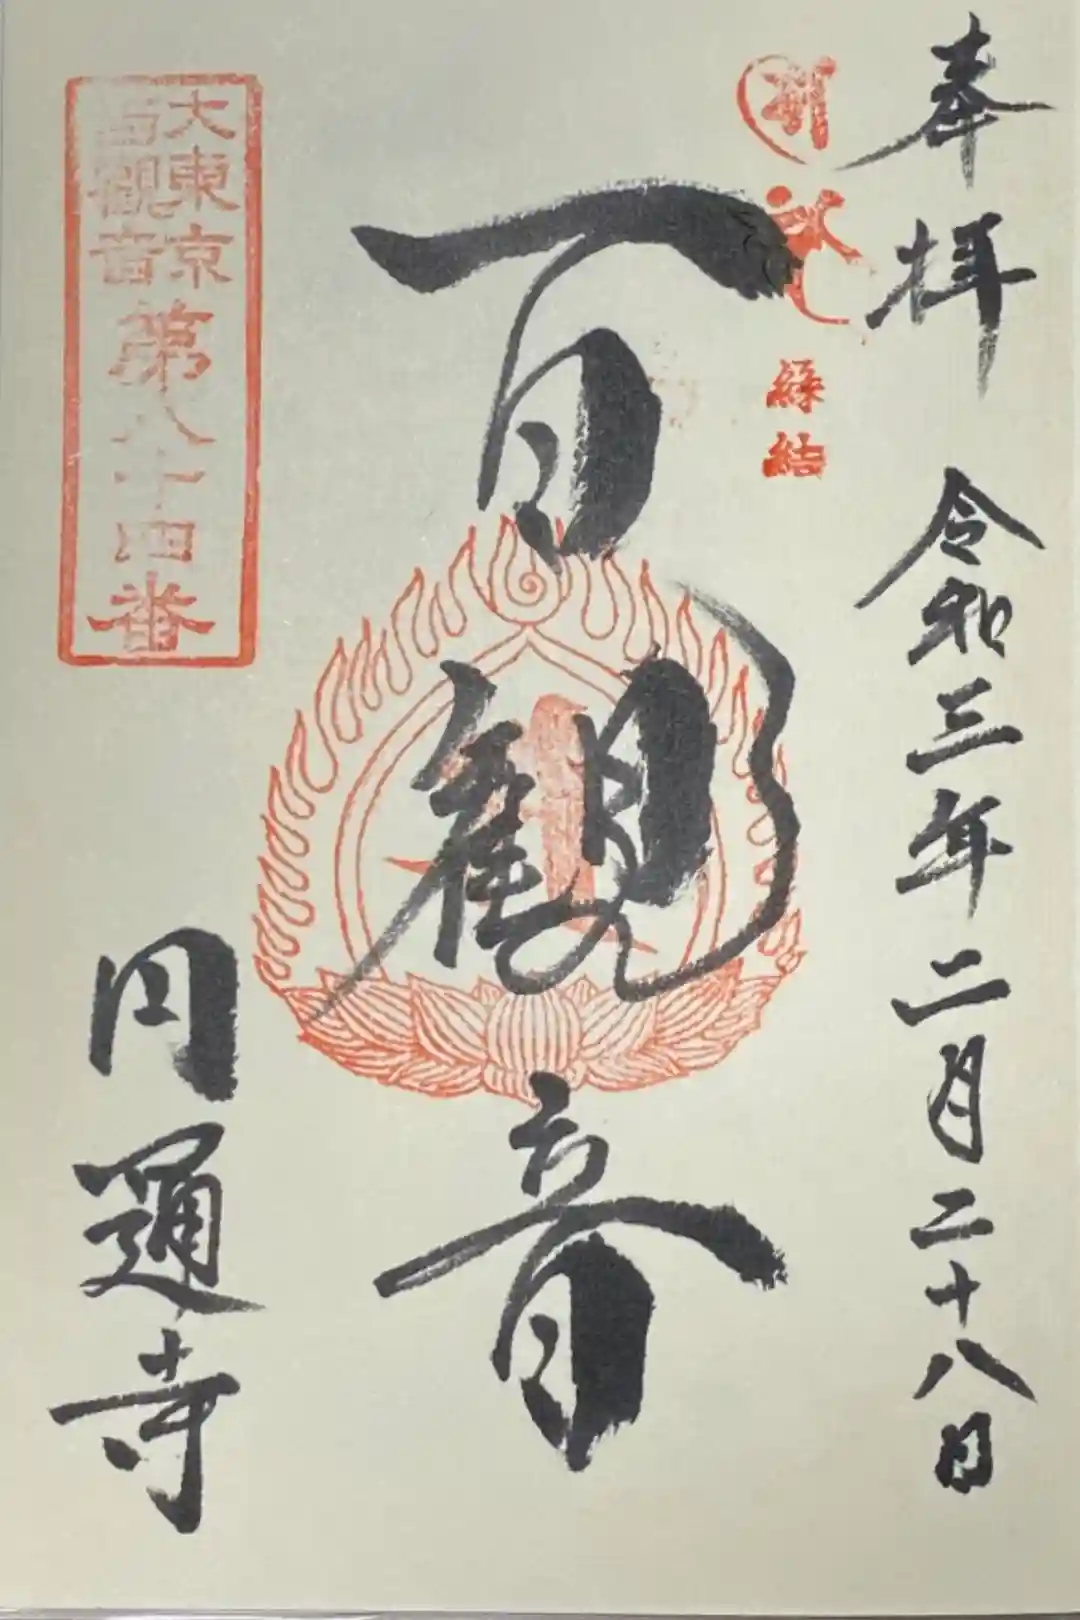 奉拝
令和三年二月二十八日
縁結
百観音
大東京
百観音
第八十四番
円通寺